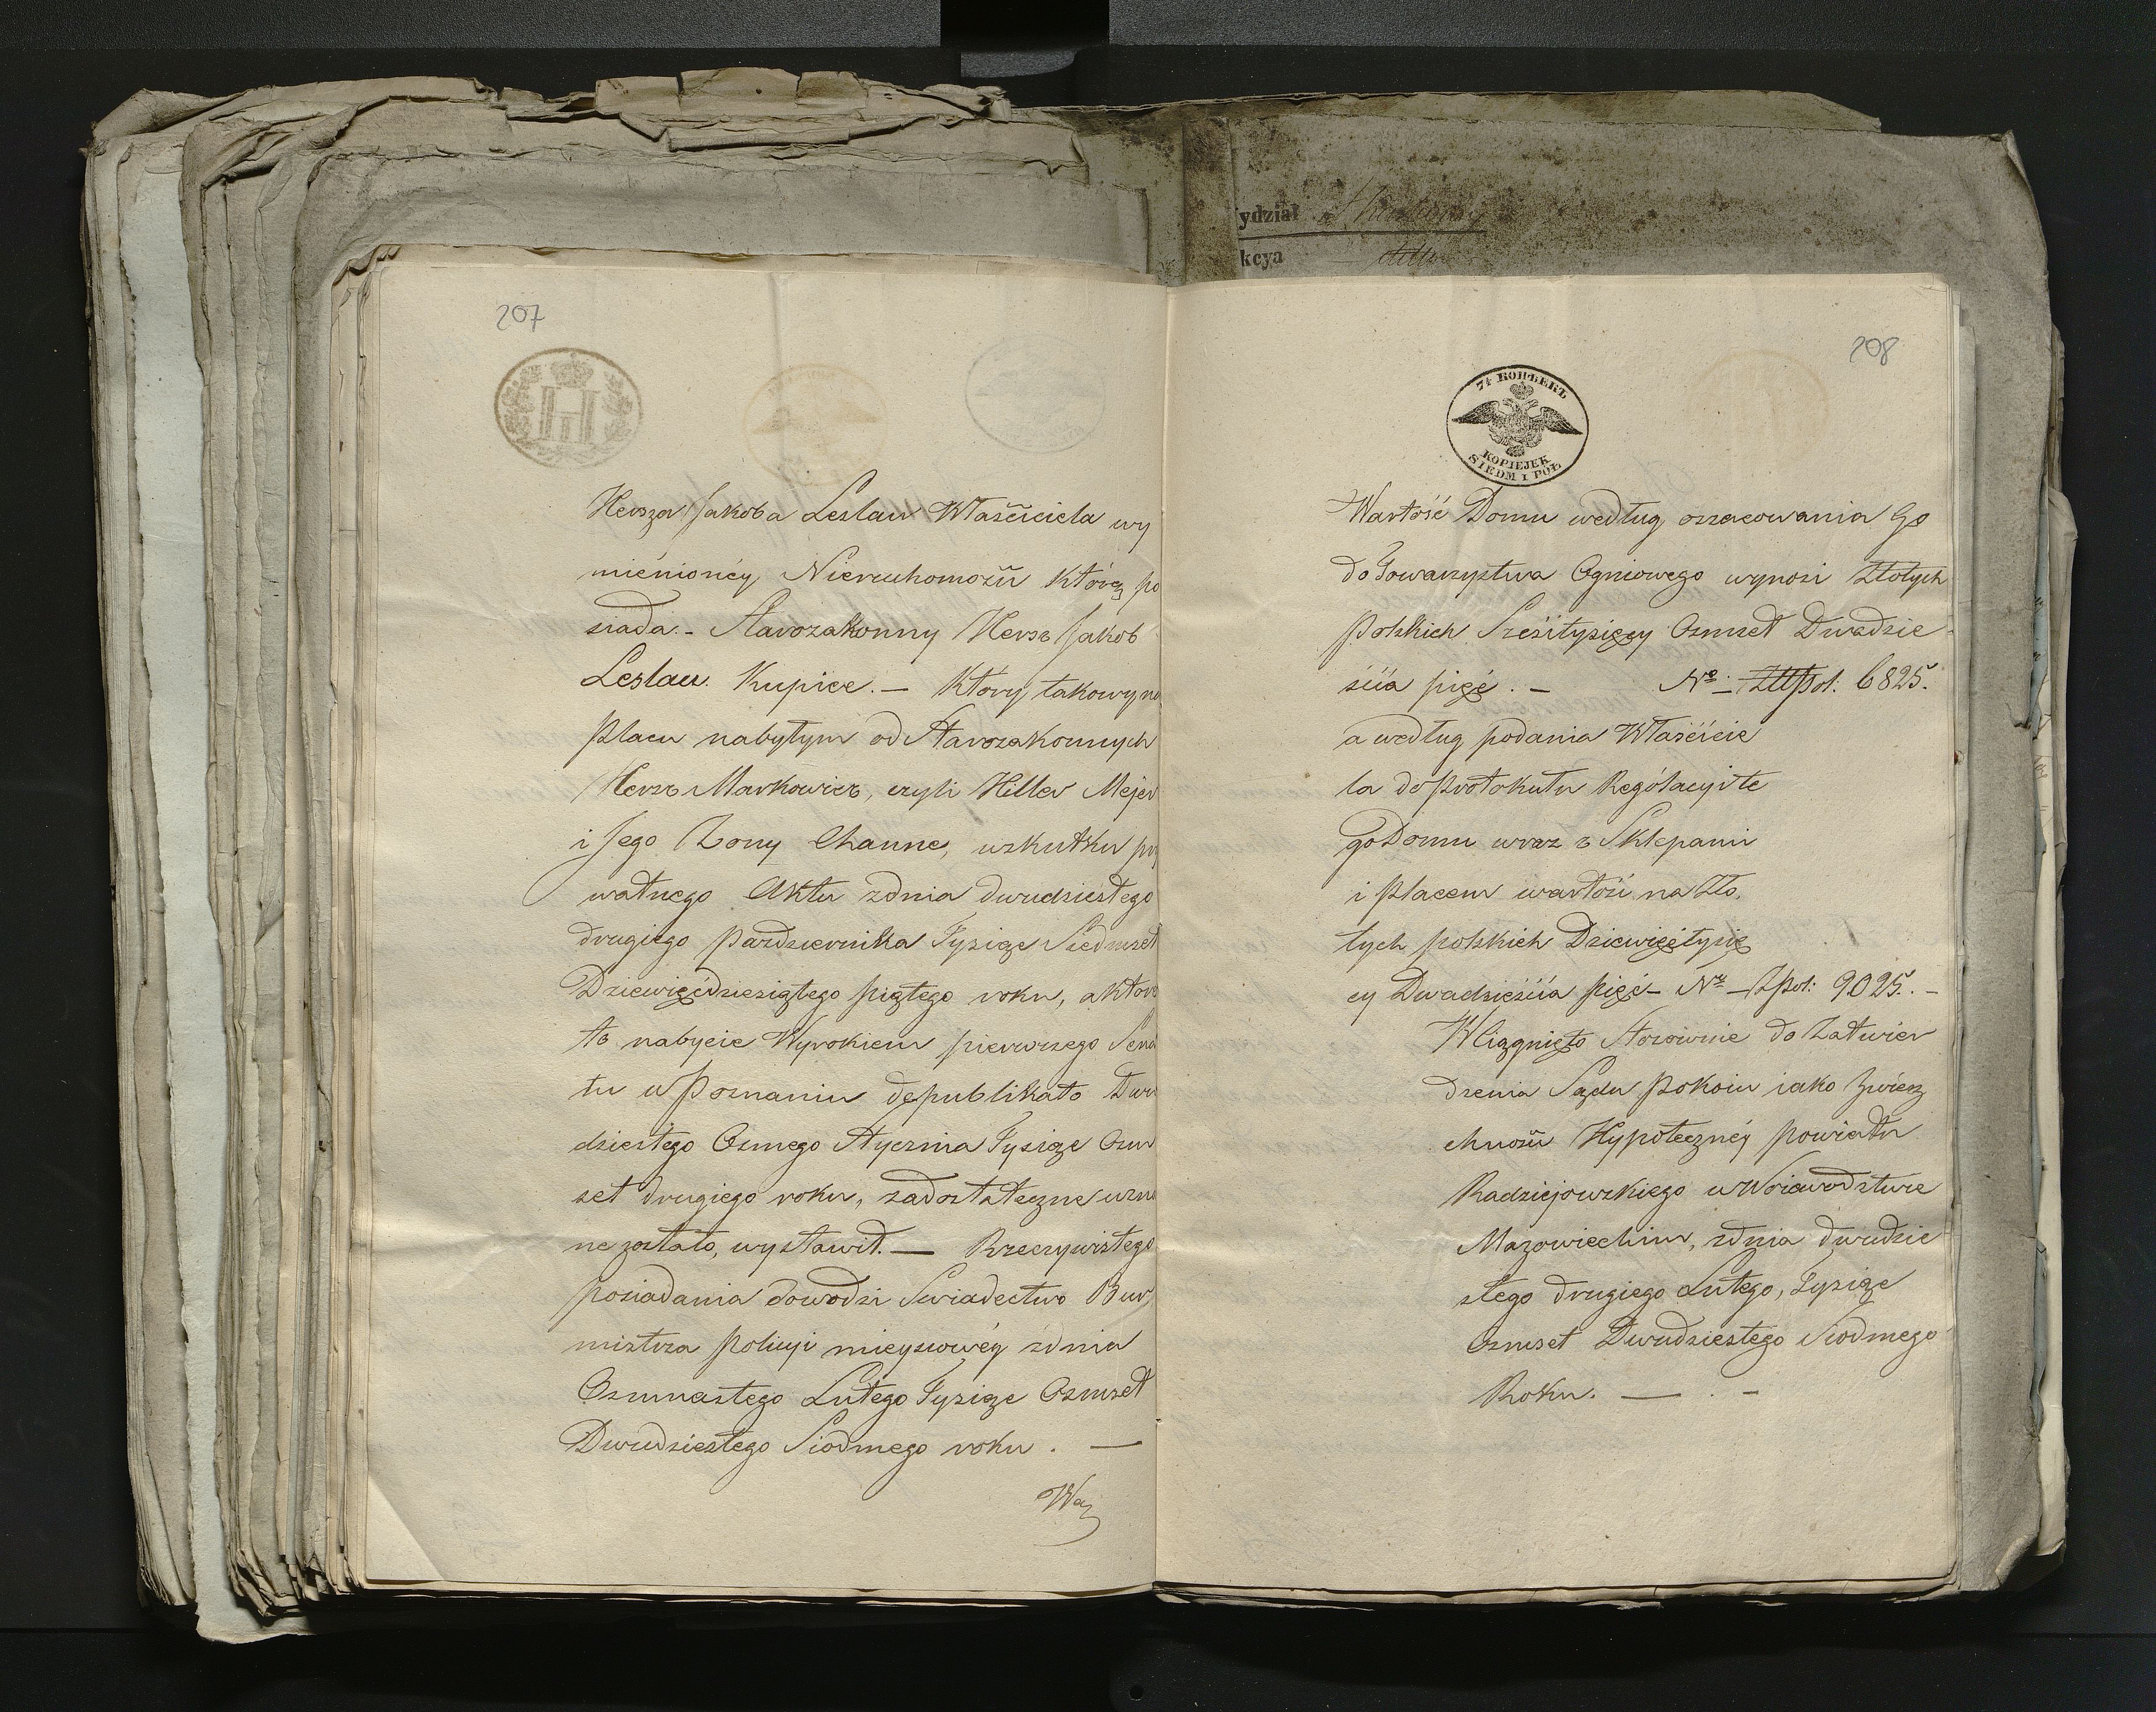 207
Hersza Jakoba Leslau Właściciela wy
mienionéy Nieruchomości którą po
siada. – Starozakonny Hersz Jakob
Leslau. Kupiec. – który takowy na
placu nabytym od Starozakonnych
Hersz Markowicz, czyli Heller Mejer
i Jego Żony Channe, wskutku pry
watnego Aktu zdnia dwudziestego
drugiego Pazdziernika Tysiąc Siedmset
Dziewięćdziesiątego piątego roku, a które
to nabycie Wyrokiem pierwszego Sena
tu w Poznaniu de publikato Dwu
dziestego Osmego Stycznia Tysiąc Osm
set drugiego roku, zadostateczne uzna
ne zostało, wystawił. — Rzeczywistego
posiadania dowodzi Swiadectwo Bur
mistrza Policyi mieyscowéy zdnia
Osmnastego Lutego Tysiąc Osmset
Dwudziestego Siodmego roku. —
208
7½ КОПѢЕКЪ
KOPIEJEK
SIEDM I PÓŁ
Wartość Domu według oszacowania Go
do Towarzystwa Ogniowego wynosi Złotych
Polskich Sześćtysięcy Osmset Dwadzie
ścia pięć. – No – Złłpol: 6825.
a według podania Właścicie
la do Protokułu Rególacyi te
go Domu wraz z Sklepami
i Placem wartość na Zło,
tych polskich Dziewięćtysię
cy Dwadzieścia pięć – No – Zpol: 9025. –
Wciągnięto Stosownie do Zatwier
dzenia Sądu Pokoiu iako Zwierz
chności Hypoteczney Powiatu
Radziejowskiego w Woiewodztwie
Mazowieckim, zdnia dwudzie
stego drugiego Lutego, Tysiąc
Osmset Dwudziestego Siodmego
Roku. — . –
ydział
kcya